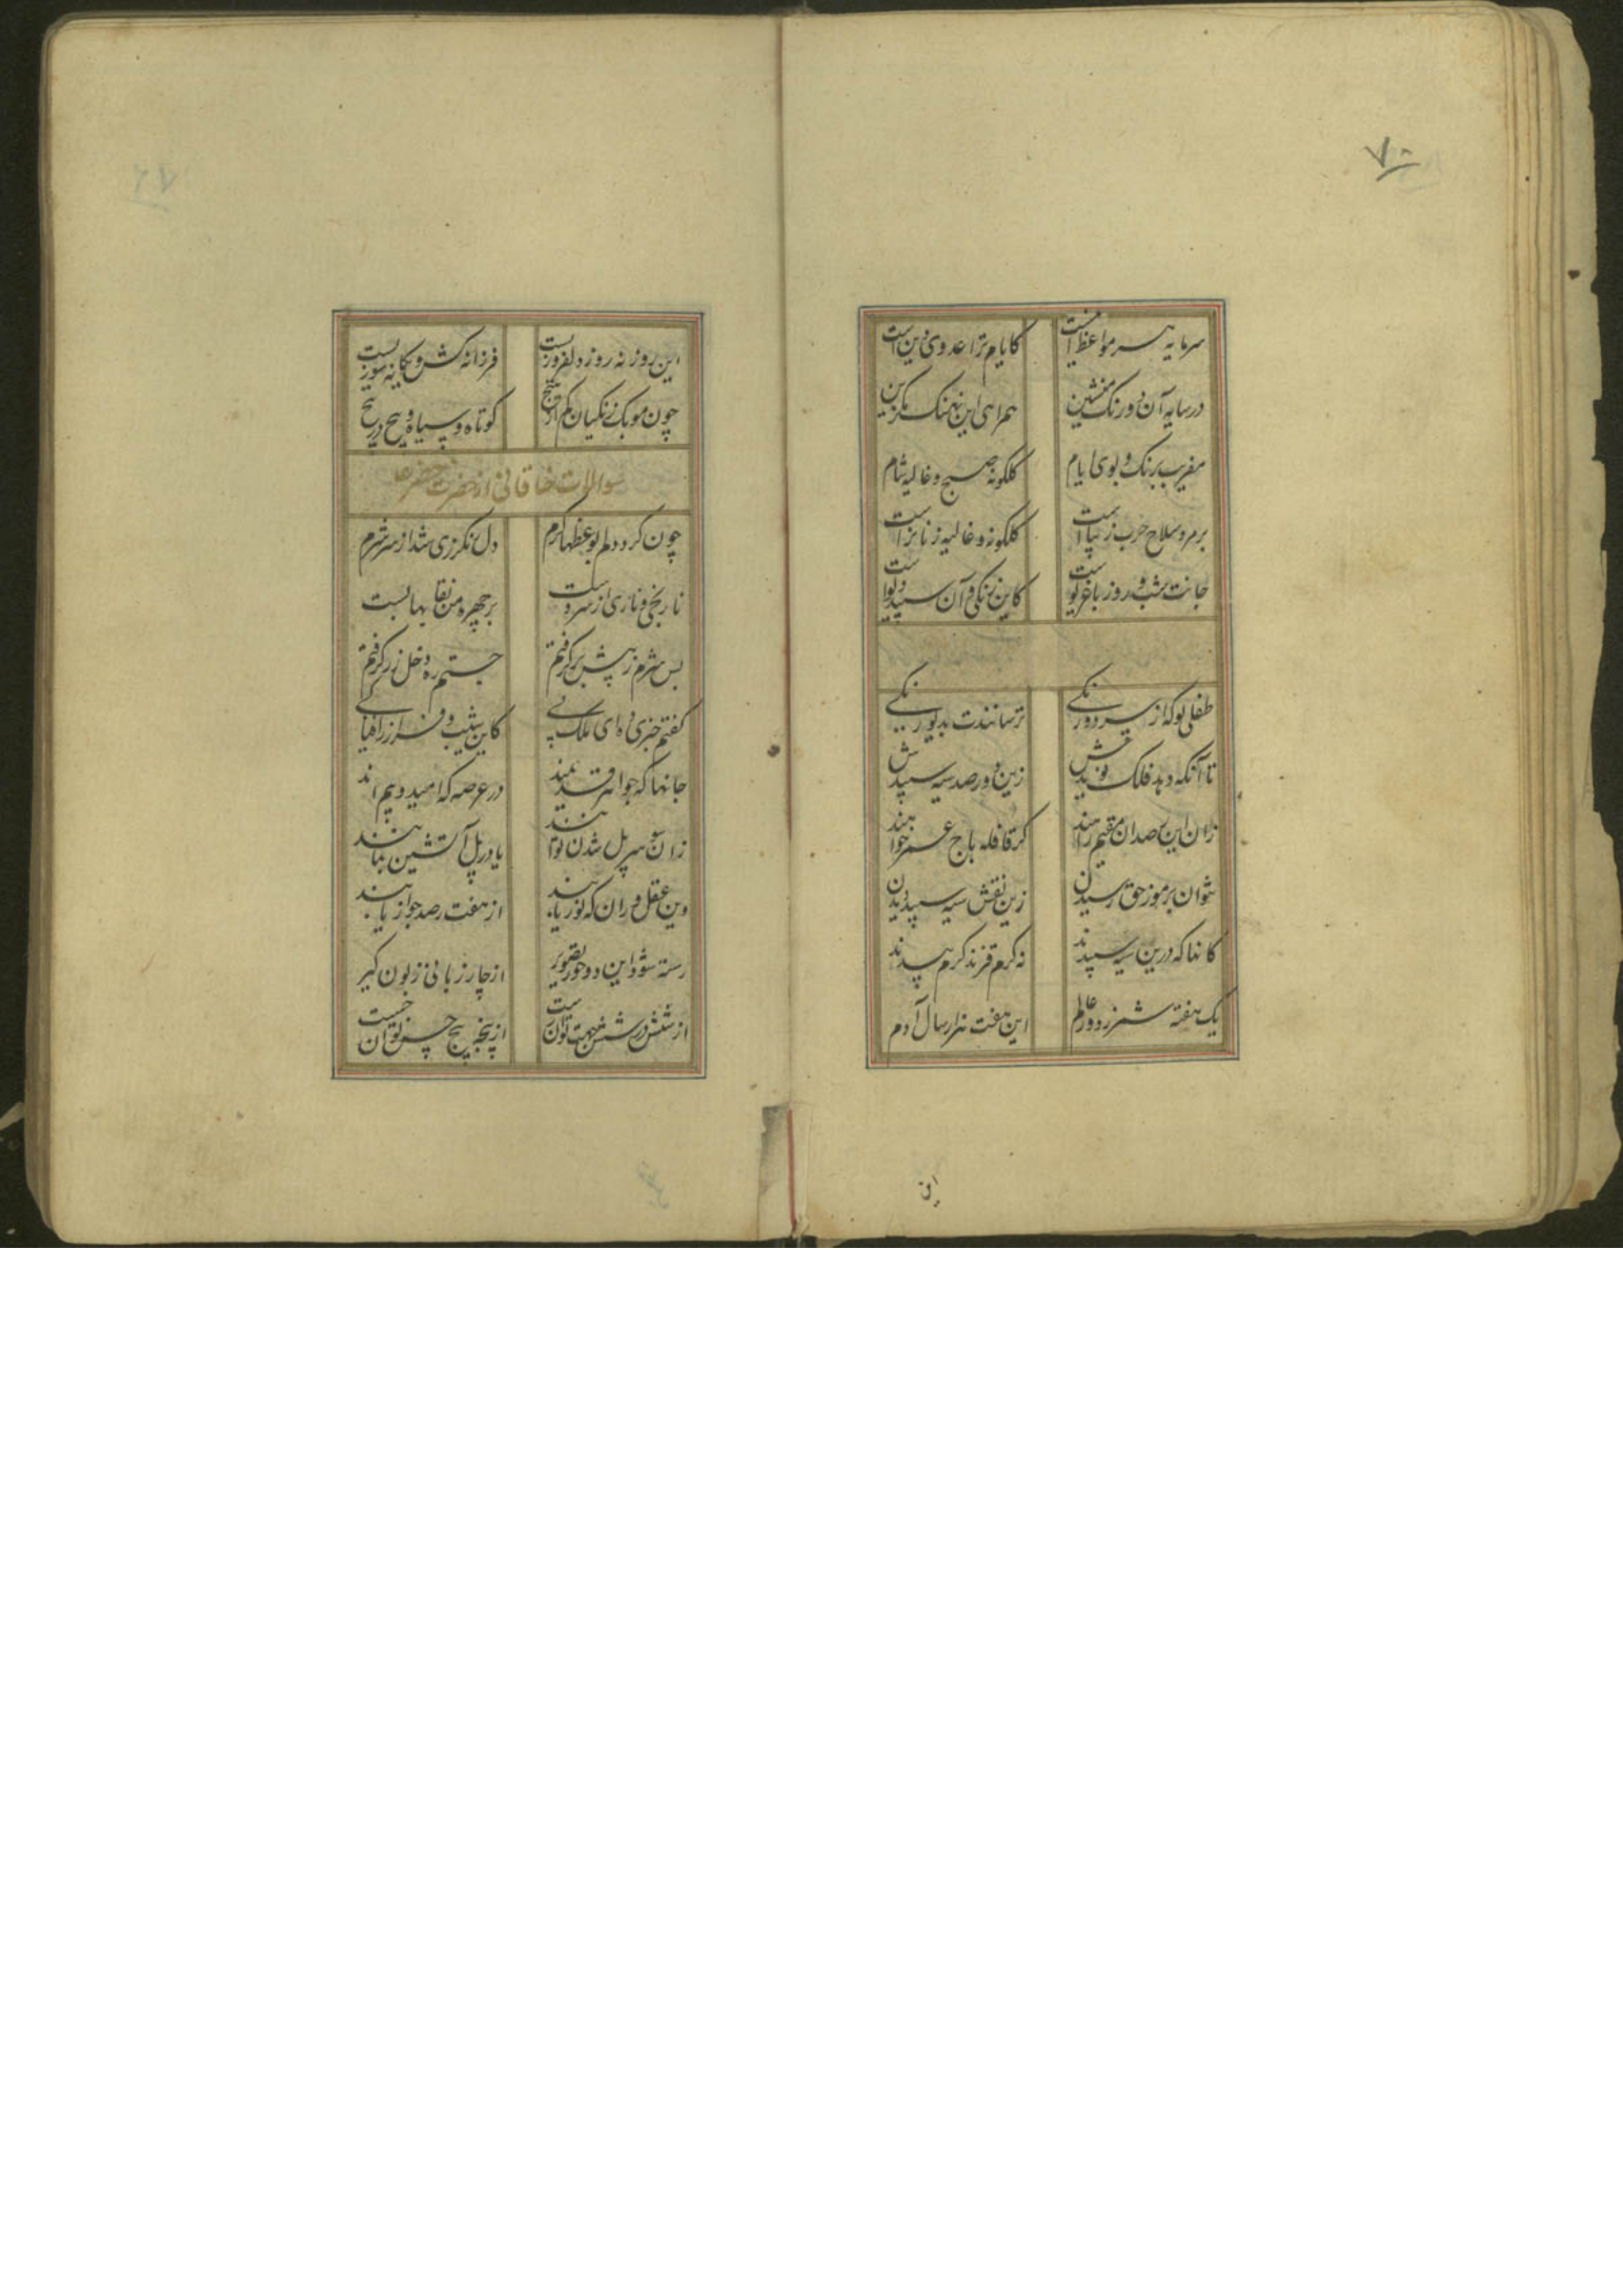 ۷۰
سرمایه هر سر مواعظ اینست کایام ترا عدوی دین است
در سایه آن دورنگ منشین همراهی این نهنگ مگزین
مفریب برنک و بوی ایام کلکونه صبح و غالیه شام
بر مرد سلاح حرب زیباست کلکونه و غالیه زنانراست
جانت شب و روز باغریوست کاین زنکی و آن سپید دیوست
طفلی تو که از سر دورنکی ترسانندت بدیو زنکی
تا آنکه دهد فلک نویدش زین دو رصد سیه سپیدش
زان این رصدان مقیم راهند کز قافله باج عمر خواهند
نتوان برموز حق رسیدن زین نقش سیه سپید دیدن
کانها که درین سیه سپیدند نه کرم قزند کرم بیدند
یک هفته شمر ز دور عالم این هفت هزار سال آدم
این
این روز نه روز دلفروزست فرزانه کش و یکانه سوزست
چون موبک زنکیان کم از هیچ کوتاه و سیاه و پیچ در پیچ
سوالات خاقانی از حضرت خضر ع
چون کرد دلم بوعظها کرم دل نکرزی شد از سر شرم
نارنجی و ناری از سر دست بر چهره من نقابها بست
پس شرم ز پیش برکرفتم جستم ره دخل زر کرفتم
کفتم خبری ده ای ملک پی کاین شیب و فراز را فیا کی
جانها که جوانه قدیمند در عرصه که امید و بیم اند
زان سوی سر پل شدن توانند یا در پل آتشین بمانند
وین عقل وران که نور یابند از هفت رصد جواز یابند
رسته شود این دو حور تصویر از چار زبانی زبون کیر
از شش در شش جهت توان رست از پنجه پنج حس توان جست